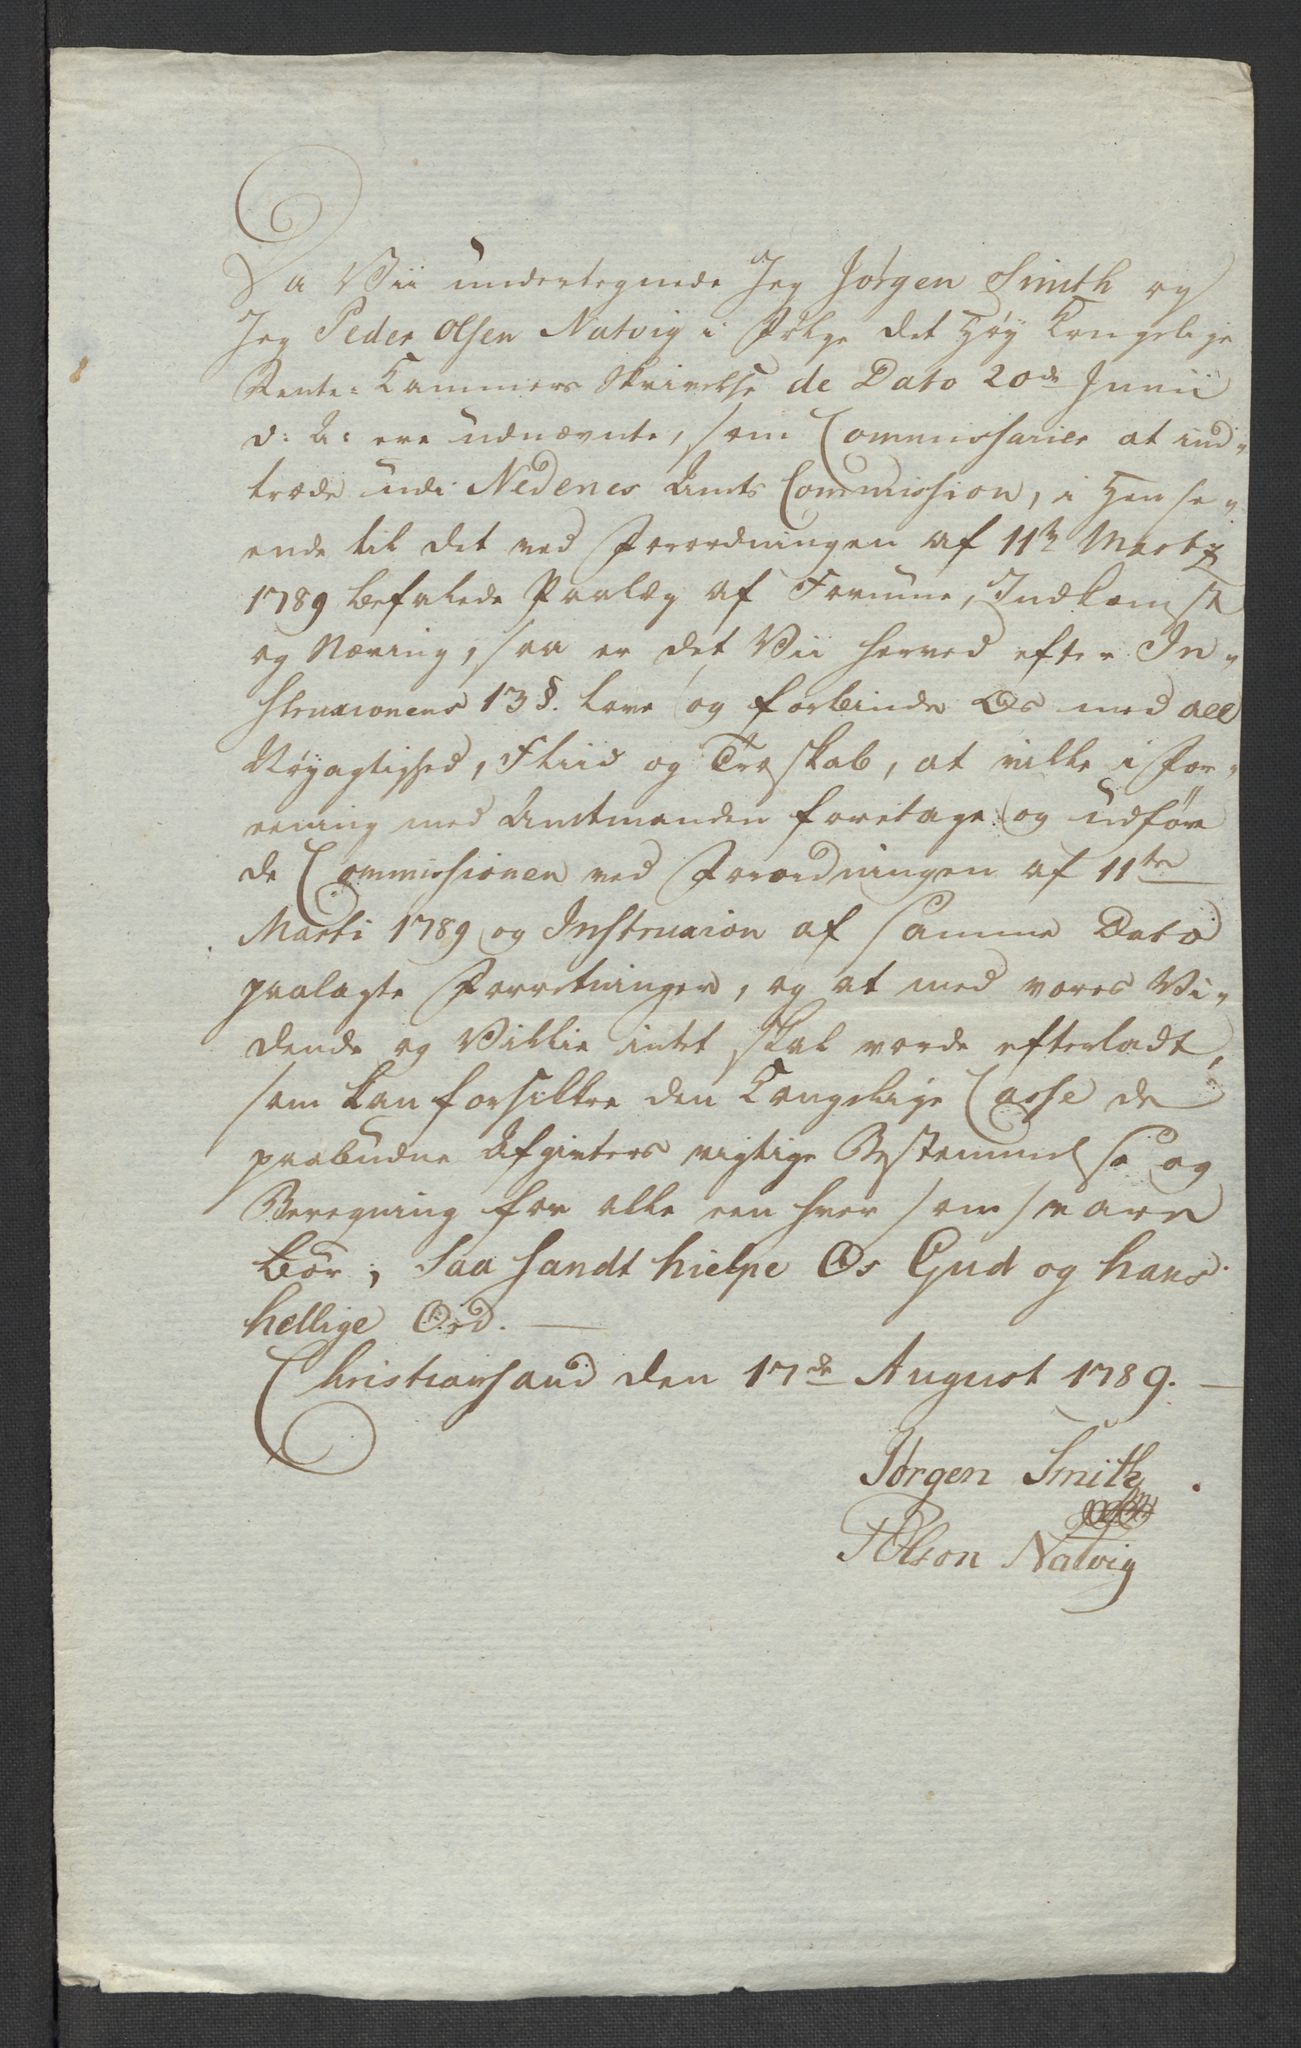 Da Vii undertegnede Jeg Jørgen Smith og
Jeg Peder Olsen Natvig i Følge det Høy Kongelige
Rente: Kammers Skrivelse de Dato 20de Junii
d: A: ere udnævnte, som Commissarier at ind-
træde udi Nedenes Amts Commission, i Hense-
ende til det ved Forordningen af 11te Marty
1789 befalede Paalæg af Formue, Indkomst
og Næring, saa er det Vii herved efter In-
struxionens 13 §. love og forbinde Os med all
Nøyagtighed, Fliid og Troeskab, at ville i For-
eening med Amtmanden foretage og udføre
de Commissionen ved Forordningen af 11te
Marti 1789 og Instruxion af samme Dato
paalagte Forretninger, og at med vores Vi-
dende og Villie intet skal vorde efterladt,
som kan forsikkre den Kongelige Casse de
paabudne Afgivters rigtige Bestemmelse og
Beregning for alle een hver som svare
bør, Saa sandt hielpe Os Gud og hans
hellige Ord.
Christiansand den 17de August 1789.
Jørgen Smith
POlson Natvig